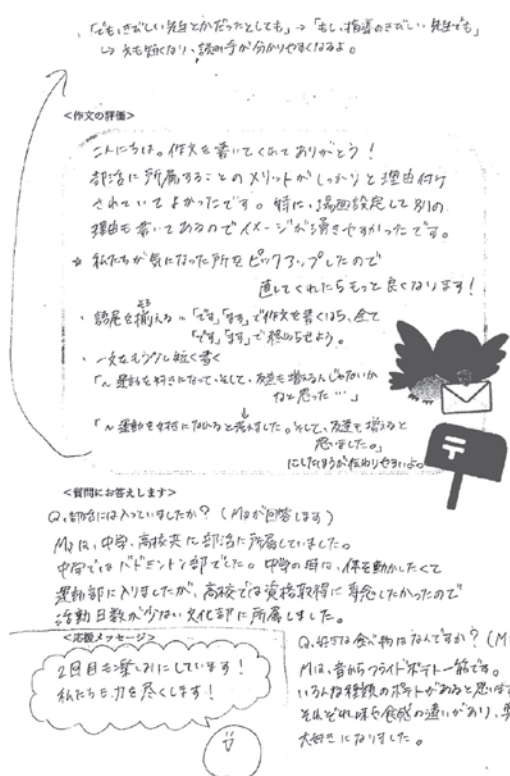 ・「でも、きびしい先生とかだったとしても」→「もし、指導のきびしい先生でも」
↳ 文も短くなり、読み手が分かりやすくなるよ。
<作文の評価>
こんにちは。作文を書いてくれてありがとう！
部活に所属することのメリットがしっかりと理由付け
されていてよかったです。特に、場面設定して別の
理由も書いてあるのでイメージが湧きやすかったです。
☆ 私たちが気になった所をピックアップしたので
直してくれたらもっと良くなります！
・語尾を揃える
「です」「ます」で作文を書くなら、全て
「です」「ます」で終わらせよう。
・一文をもう少し短く書く
「～運動を好きになって、そして、友達も増えるんじゃないか
なと思った…」
↓
「～運動を好きになれると考えました。そして、友達も増えると
思いました。」
にしたほうが伝わりやすいよ。
<質問にお答えします>
Q、部活には入っていましたか？（Mが回答します）
Mは、中学、高校共に部活に所属していました。
中学ではバドミントン部でした。中学の時は、体を動かしたくて
運動部に入りましたが、高校では資格取得に専念したかったので
活動日数が少ない文化部に所属しました。
<応援メッセージ>
2回目も楽しみにしています！
私たちも力を尽くします！
Q、好きな食べ物はなんですか？（M
Mは、昔からフライドポテト一筋です。
いろんな種類のポテトがあると思います
それぞれ味や食感の違いがあり、
大好きになりました。